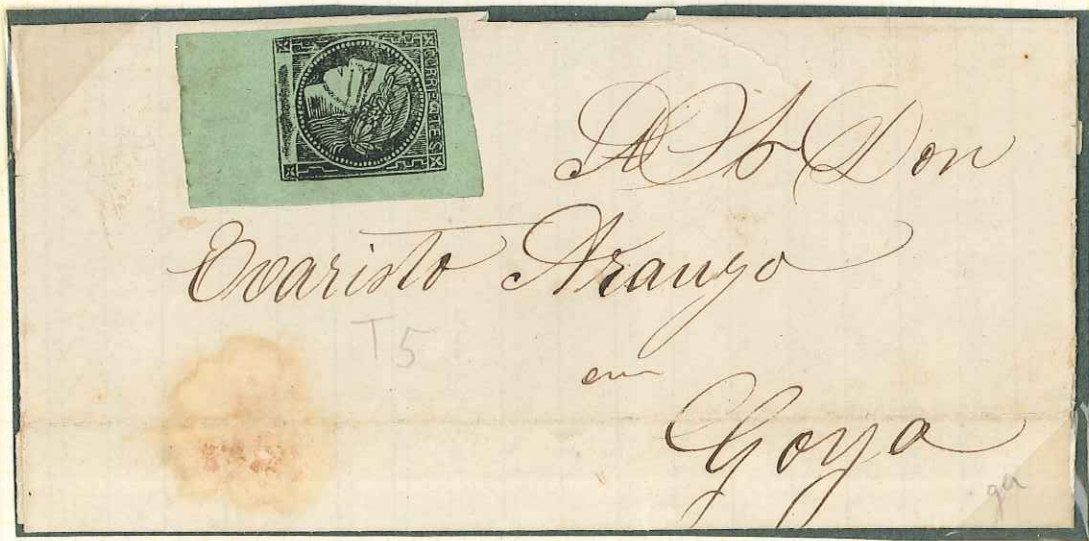 CORRIENTES
Al Sr Don
Evaristo Araujo
T5
en
Goya
ga